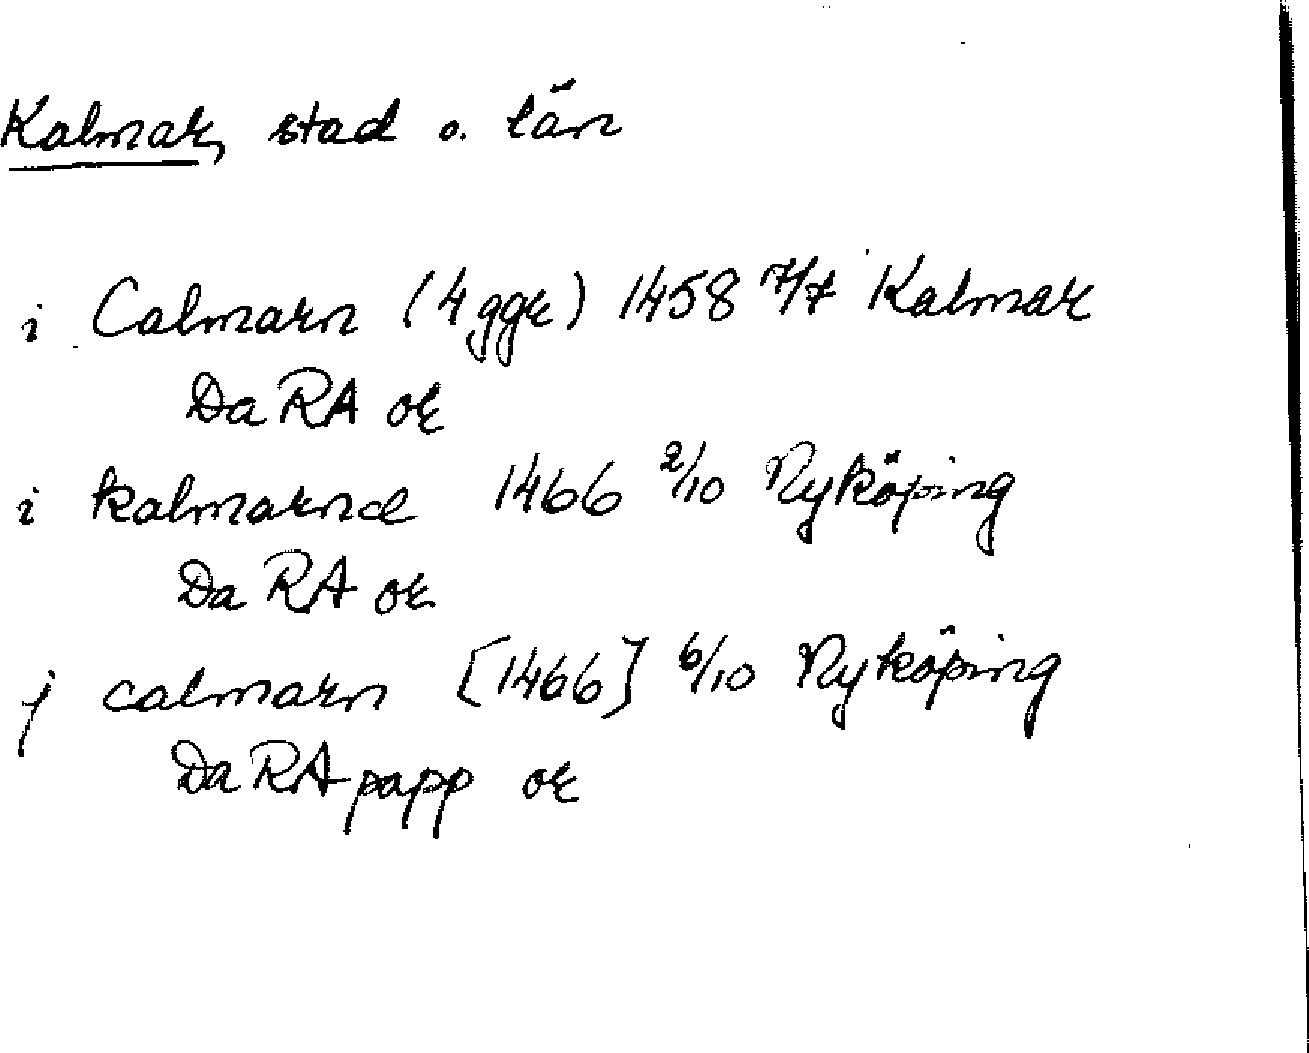 Kalmar, stad o. län
i Calmarn (4 ggr) 1458 7/7 Kalmar
Da RA or
i kalmarne 1466 2/10 Nyköping
Da RA or
j calmarn [1466] 6/10 Nyköping
Da RA papp or